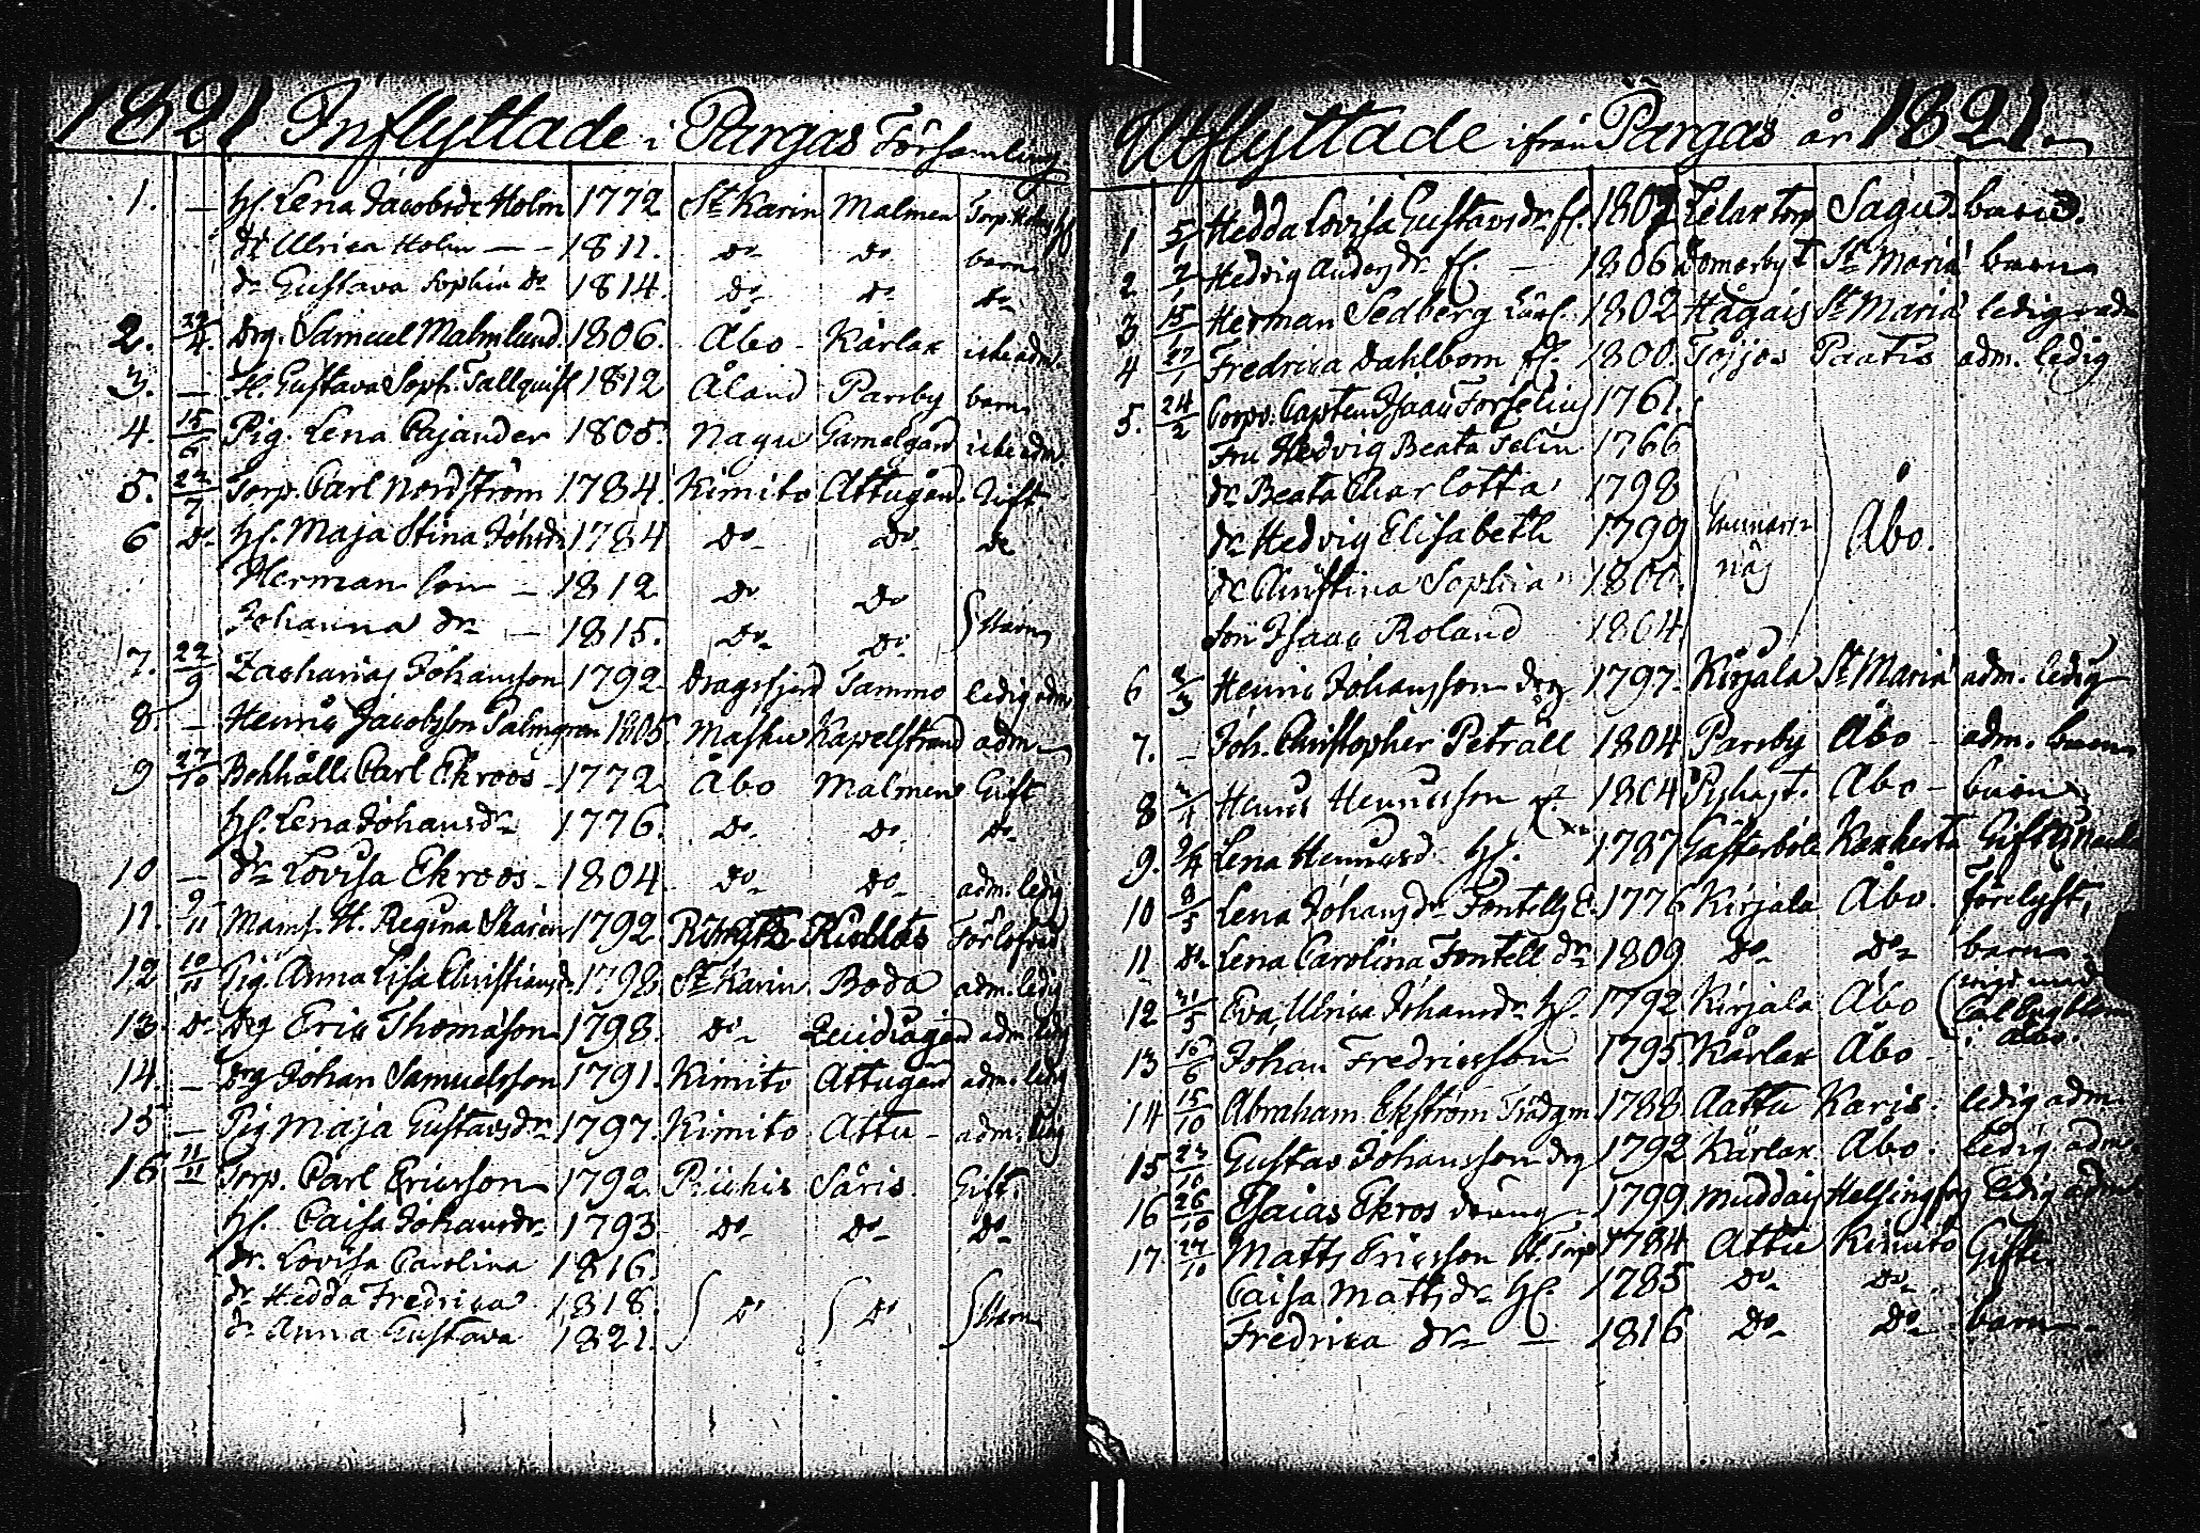 1821 Inflyttade i Pargas Församling.
1. — Hf. Lena Jacobsdr Holm 1772 St Karin Malmen Torp
dr Ulrica Holm — — 1811. do do barn
dr Gustava Sophia do 1814. do do do
2. 4. Drg. Samuel Malmlund. 1806. Åbo - Kårlax icke adm.
3. — Fl. Gustava Soph. Tallquist 1812 Åland Parsby barn
4. 15/6 Pig. Lena Cajander 1805. Nagu Gamelgård icke adm.
5. 22/7 Torp. Carl Nordström 1784. Kimito Attugård. Gift.
6 do Hf. Maja Stina Johsdr 1784 do do do
Herman son — 1812 do do
Johanna dr — 1815. do do barn
7. 22/9 Zacharias Johansson 1792 Dragsfjerd Tammo ledig adm
8. — Henric Jacobsson Palmgren 1805. Masku Kapelstrand adm
9 27/10 Bokhålle Carl Ekroos - 1772 Åbo Malmen Gift
Hf. Lena Johansdr 1776. do do do
10 — dr Lovisa Ekroos - 1804. do do adm. ledig
11. 9/11 Mams. H. Regina Skarin 1792
12 10/11 Pig. Anna Lisa Christiansdr 1798. St Karin Boda adm. ledig
13. do Drg Eric Thomasson 1798. do adm. ledig
14. — Drg Johan Samuelsson 1791. Kimito Attugård adm. ledig
15 — Pig Maja Gustavsdr 1797. Kimito Attu - adm. ledig
16. 11/11 Torp. Carl Ericsson 1792. Piikis Såris. Gift.
Hf. Caisa Johansdr 1793 do do do
dr. Lovisa Carolina 1816.
dr Hedda Fredrica 1818. do do barn
dr Anna Gustava 1821.
Utflyttade ifrån Pargas år 1821.
1 5/1 Hedda Lovisa Gustavsdr fl. 1807 Lelax torp Sagu. barn.
2 2/1 Hedvig Andersdr fl. — 1806 Domarby t St Mariæ barn
3 15/1 Herman Sedberg 1802 Hågais St Mariæ ledig adm
4 27/1 Fredrica Dahlbom fl. 1800. Tojjos Paatis adm. ledig
5. 24/2 Corps. Capten Isaac Forselius 1761.
Fru Hedvig Beata Felin 1766
dr Beata Charlotta 1798
dr Hedvig Elisabeth 1799 Gunnarsnäs Åbo.
dr Christina Sophia 1800.
son Isaac Roland 1804
6 2/3 Henric Johansson drg 1797. Kirjala St Mariæ adm. ledig
7. — Joh. Christopher Petrall 1804 Parsby Åbo - adm. barn
8 Henric Henricsson 1804 Åbo - barn
9. Lena Henricsd. Hf. 1787 Gästerböle Gift
10 8/5 Lena Johansdr Fontells E. 1776 Kirjala Åbo. förelyst,
11 do Lena Carolina Fontell dr 1809 do do barn
12 Eva Ulrica Johansdr Hf. 1792 Kirjala Åbo (vigd med Carl Engblom i Åbo.
13 Johan Fredricsson 1795 Kårlax Åbo -
14 15/10 Abraham Ekström Trädgm 1788. Aattu Karis. ledig adm.
15 23/10 Gustav Johansson drg 1792 Kårlax Åbo. ledig adm.
16 26/10 Esaias Ekros dräng - 1799. Muddais Helsingfors ledig adm.
17. 27/10 Matts Ericsson St. Torp 1784 Attu Kimito Gift.
Caisa Mattsdr Hf. 1785 do do
Fredrica dr — 1816 do do barn.